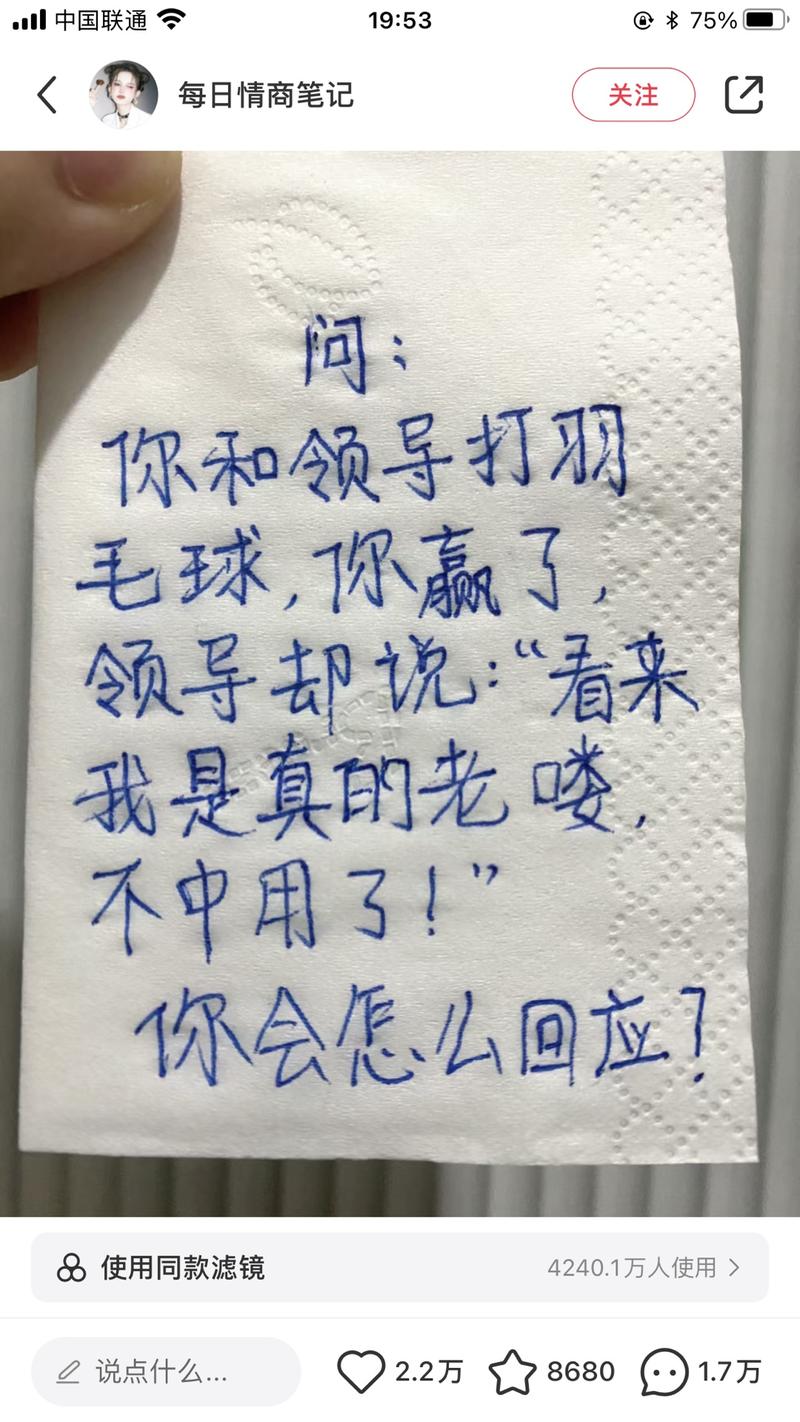 中国联通 19:53 75%
每日情商笔记 关注
问：
你和领导打羽
毛球，你赢了，
领导却说：“看来
我是真的老喽，
不中用了！”
你会怎么回应？
使用同款滤镜 4240.1万人使用
说点什么... 2.2万 8680 1.7万